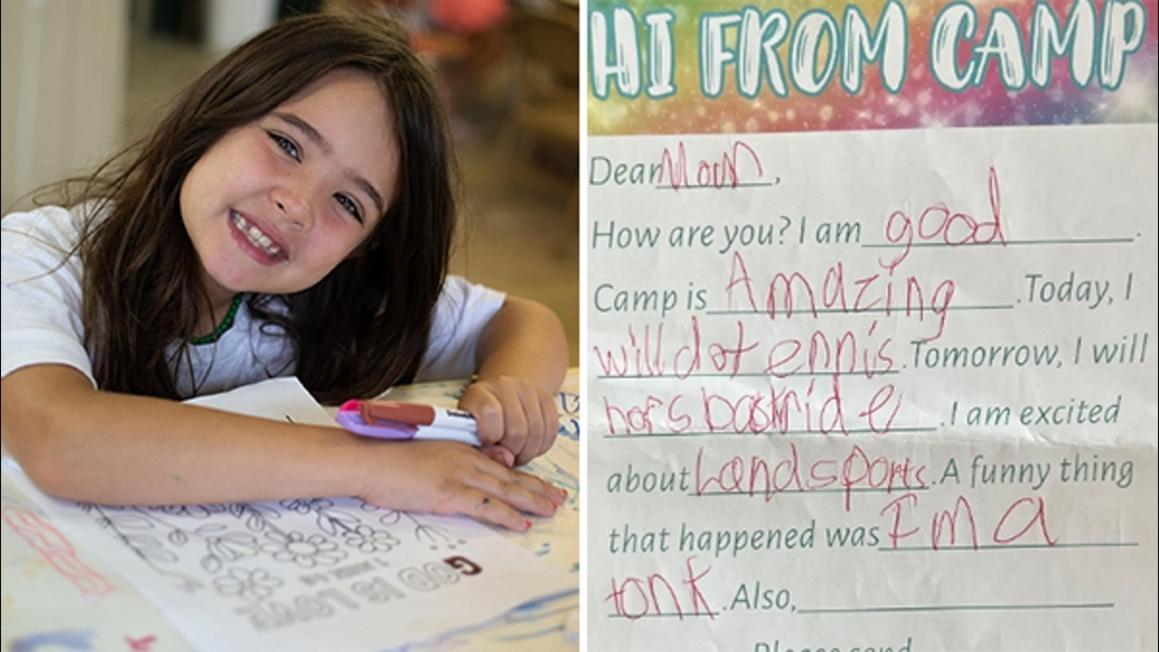 HI FROM CAMP
Dear Mom,
How are you? I am good.
Camp is Amazing. Today, I
will dot ennis. Tomorrow, I will
horsbaskride. I am excited
about Landsports. A funny thing
that happened was I'm a
tonk. Also,
Please send
GOD IS LOVE